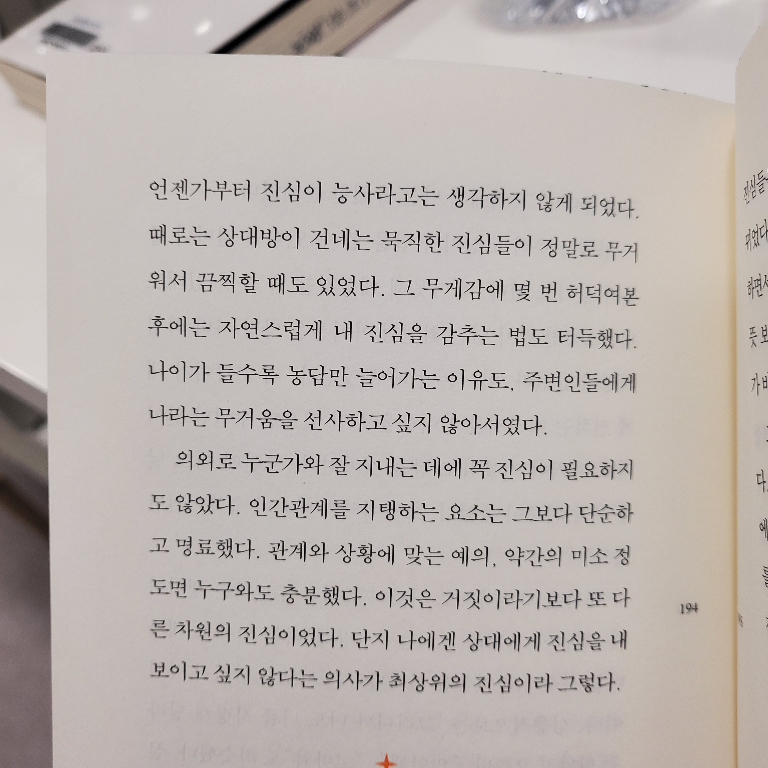 언젠가부터 진심이 능사라고는 생각하지 않게 되었다.
때로는 상대방이 건네는 묵직한 진심들이 정말로 무거
워서 끔찍할 때도 있었다. 그 무게감에 몇 번 허덕여본
후에는 자연스럽게 내 진심을 감추는 법도 터득했다.
나이가 들수록 농담만 늘어가는 이유도, 주변인들에게
나라는 무거움을 선사하고 싶지 않아서였다.
의외로 누군가와 잘 지내는 데에 꼭 진심이 필요하지
도 않았다. 인간관계를 지탱하는 요소는 그보다 단순하
고 명료했다. 관계와 상황에 맞는 예의, 약간의 미소 정
도면 누구와도 충분했다. 이것은 거짓이라기보다 또 다
른 차원의 진심이었다. 단지 나에겐 상대에게 진심을 내
보이고 싶지 않다는 의사가 최상위의 진심이라 그렇다.
194
진심들
되었다
하면서
뜻 보
다.